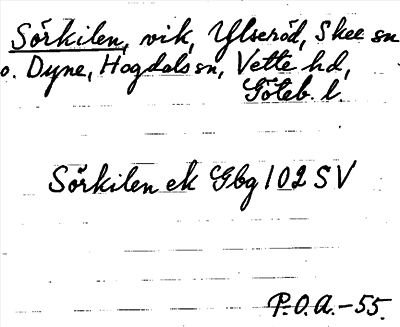 Sörkilen, vik, Ylseröd, Skee sn
o. Dyne, Hogdals sn, Vette hd,
Göteb. l.
Sörkilen ek Gbg 102 SV
P.O.A.-55.